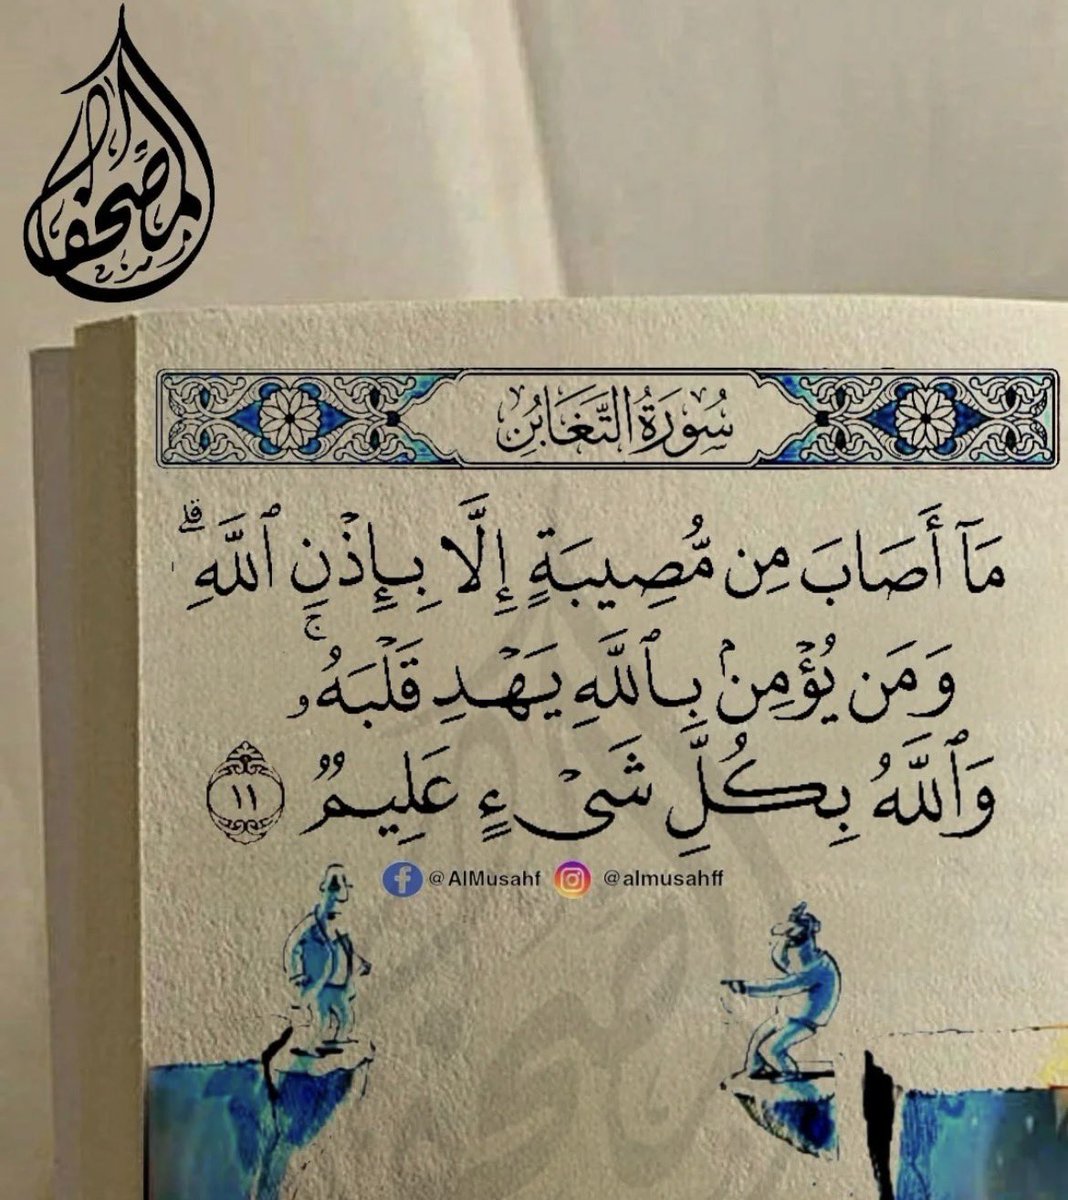 المصحف
سُورَةُ التَّغَابُنِ
مَآ أَصَابَ مِن مُّصِيبَةٍ إِلَّا بِإِذْنِ ٱللَّهِ ۗ
وَمَن يُؤْمِنۢ بِٱللَّهِ يَهْدِ قَلْبَهُۥ ۚ
وَٱللَّهُ بِكُلِّ شَىْءٍ عَلِيمٌ ١١
@AlMusahf @almusahff